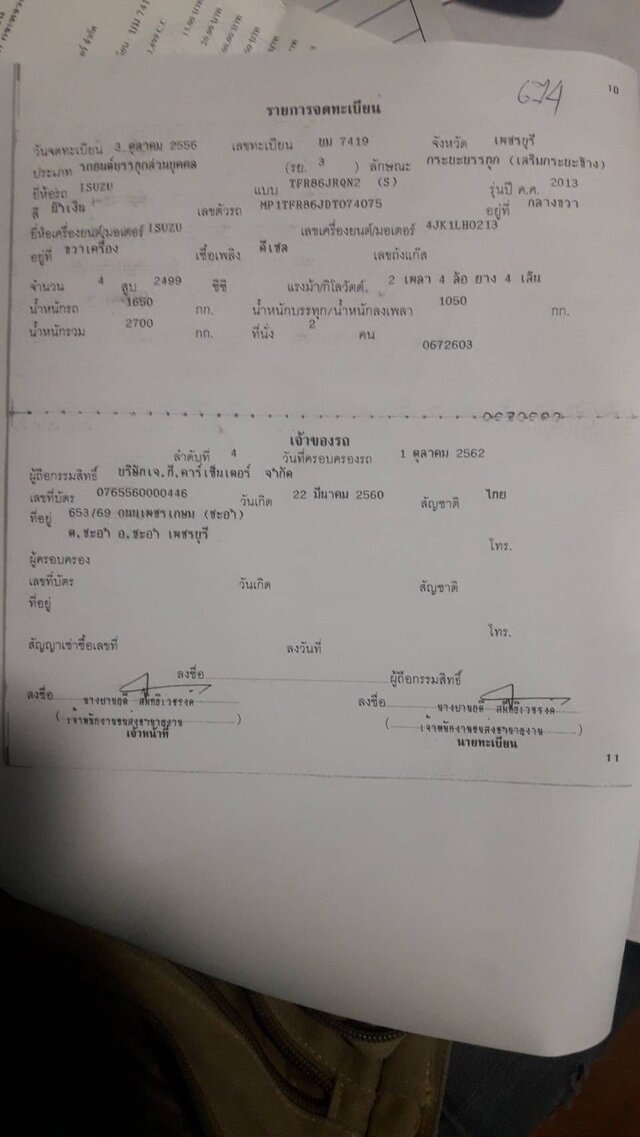 บม 741
2,499 C.C
15.00 บาท
20.00 บาท
00.00 บาท
บาท
บาท
674
10
รายการจดทะเบียน
วันจดทะเบียน 3 ตุลาคม 2556 เลขทะเบียน บม 7419 จังหวัด เพชรบุรี
ประเภท รถยนต์บรรทุกส่วนบุคคล (รย. 3 ) ลักษณะ กระบะบรรทุก (เสริมกระบะข้าง)
ยี่ห้อรถ ISUZU แบบ TFR86JRQN2 (S) รุ่นปี ค.ศ. 2013
สี น้ำเงิน เลขตัวรถ MP1TFR86JDT074075 อยู่ที่ กลางขวา
ยี่ห้อเครื่องยนต์/มอเตอร์ ISUZU เลขเครื่องยนต์/มอเตอร์ 4JK1LH0213
อยู่ที่ ขวาเครื่อง เชื้อเพลิง ดีเซล เลขถังแก๊ส
จำนวน 4 สูบ 2499 ซีซี แรงม้า/กิโลวัตต์ 2 เพลา 4 ล้อ ยาง 4 เส้น
น้ำหนักรถ 1650 กก. น้ำหนักบรรทุก/น้ำหนักลงเพลา 1050 กก.
น้ำหนักรวม 2700 กก. ที่นั่ง 2 คน
0672603
เจ้าของรถ
ลำดับที่ 4 วันที่ครอบครองรถ 1 ตุลาคม 2562
ผู้ถือกรรมสิทธิ์ บริษัทเจ.กี.คาร์เซ็นเตอร์ จำกัด
เลขที่บัตร 0765560000446 วันเกิด 22 มีนาคม 2560 สัญชาติ ไทย
ที่อยู่ 653/69 ถนนเพชรเกษม (ชะอำ)
ต.ชะอำ อ.ชะอำ เพชรบุรี
โทร.
ผู้ครอบครอง
เลขที่บัตร วันเกิด สัญชาติ
ที่อยู่
โทร.
สัญญาเช่าซื้อเลขที่ ลงวันที่
ลงชื่อ ผู้ถือกรรมสิทธิ์
ลงชื่อ ลงชื่อ
( เจ้าพนักงานขนส่งชำนาญงาน ) ( เจ้าพนักงานขนส่งชำนาญงาน )
เจ้าหน้าที่ นายทะเบียน
11